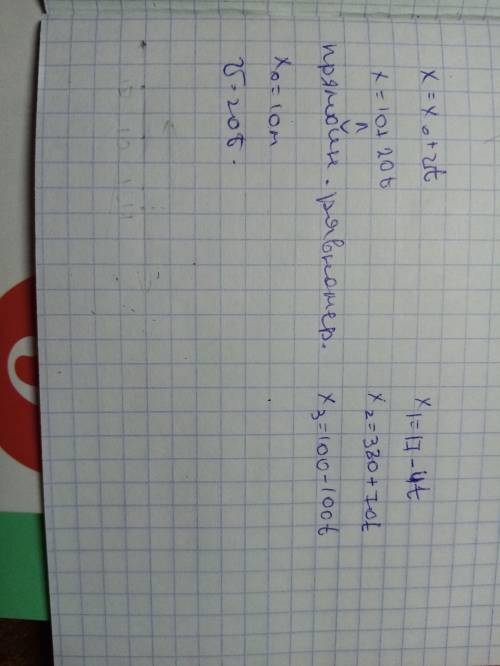 x = x₀ + vt
x = 10 + 20t
прямолин. равномер.
x₀ = 10м
v = 20t.
x₁ = 17 - 4t
x₂ = 320 + 70t
x₃ = 100 - 100t